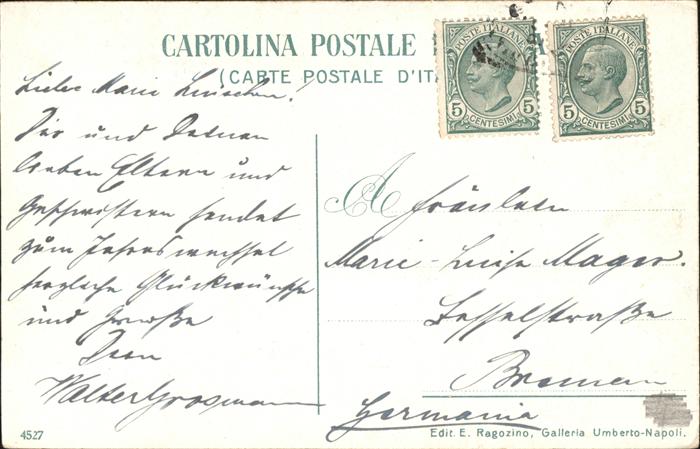 CARTOLINA POSTALE
(CARTE POSTALE D'IT
POSTE ITALIANE
5 CENTESIMI 5
POSTE ITALIANE
5 CENTESIMI 5
Liebe Marie Luischen!
Dir und Deinen
lieben Eltern und
Geschwistern sendet
zum Jahreswechsel
herzliche Glückwünsche
und Grüße
Dein
Walter Grosmann
A Fräulein
Marie-Luise Mager.
Besselstraße
Bremen
Germania
4527
Edit. E. Ragozino, Galleria Umberto-Napoli.